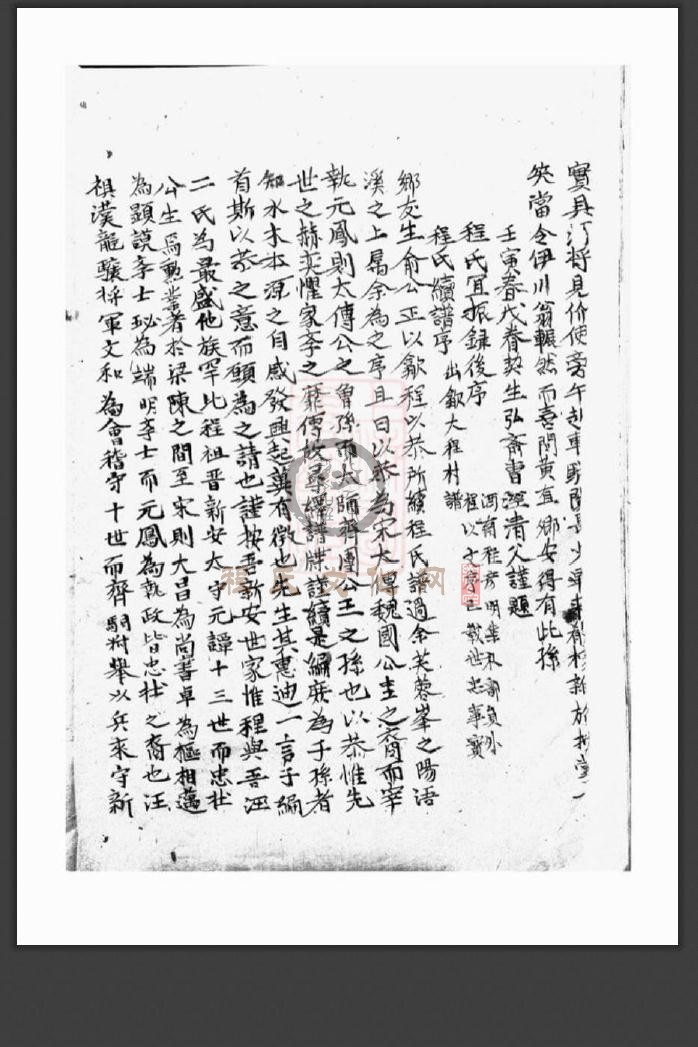 實具汀將見价使旁午赴車
笑當令伊川翁囅然而喜問黃直鄉安得有此孫
壬寅春戊眷契生弘齋曹涇清父謹題
程氏宜振錄後序
程以文序已載世忠事實
程氏續譜序 出歙大程村譜
鄉友生俞公正以歙程以恭所續程氏譜過余芙蓉峯之陽語
溪之上屬余為之序且曰以恭為宋太傅魏國公圭之裔而宰
執元鳳則太傅公之曾孫而太師齊國公王之孫也以恭惟先
世之赫奕懼家李之靡傳故尋繹譜牒謹續是編庶為子孫者
知水木本源之自感發興起冀有徵也先生其惠迪一言于編
首斯以恭之意而願為之請也謹按吾新安世家惟程與吾汪
二氏為最盛他族罕比程祖晋新安太守元譚十三世而忠壯
公生焉勳業著於梁陳之間至宋則大昌為尚書卓為樞相邁
為顯謨李士珌為端明李士而元鳳為執政皆忠壯之裔也汪
祖漢龍驤將軍文和為會稽守十世而齊駉附舉以兵來守新
程氏文化网